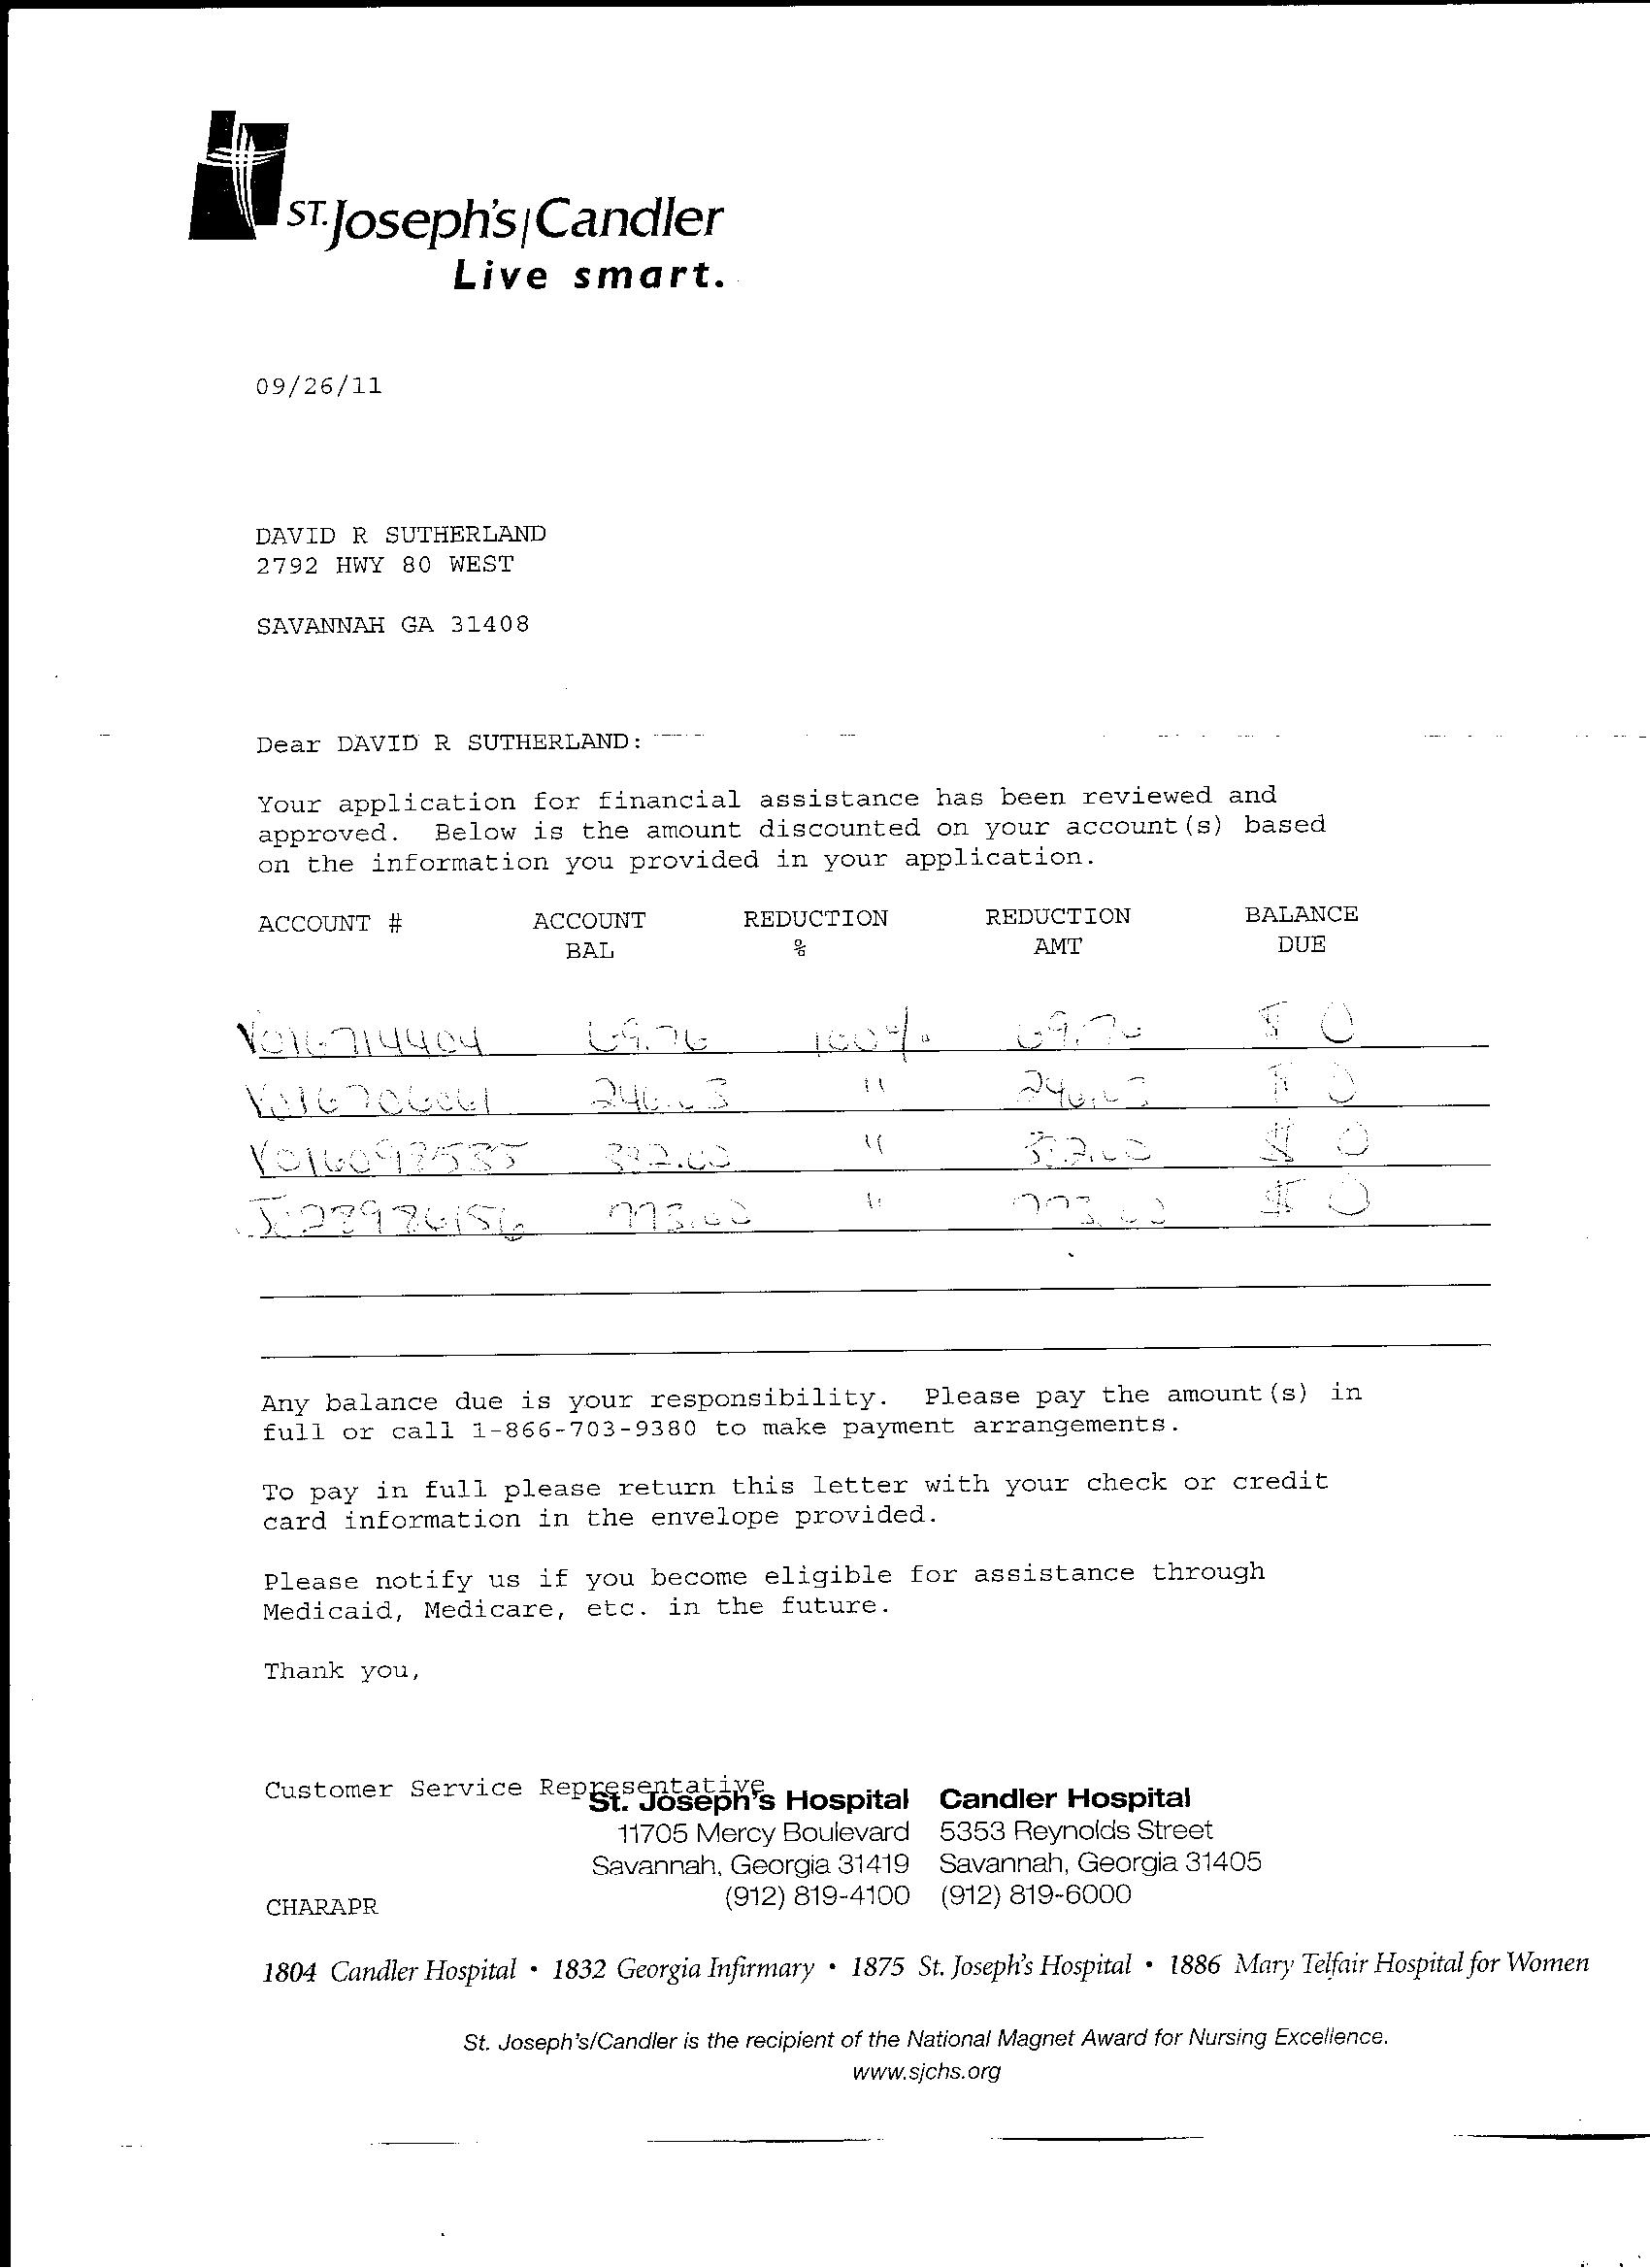 ST. Joseph's/Candler
Live smart.
09/26/11
DAVID R SUTHERLAND
2792 HWY 80 WEST
SAVANNAH GA 31408
Dear DAVID R SUTHERLAND:
Your application for financial assistance has been reviewed and
approved. Below is the amount discounted on your account(s) based
on the information you provided in your application.
ACCOUNT # ACCOUNT REDUCTION REDUCTION BALANCE
BAL % AMT DUE
V016714404 69.76 100% 69.76 $ 0
246.03 " $ 0
" $ 0
773.00 " 773.00 $ 0
Any balance due is your responsibility. Please pay the amount(s) in
full or call 1-866-703-9380 to make payment arrangements.
To pay in full please return this letter with your check or credit
card information in the envelope provided.
Please notify us if you become eligible for assistance through
Medicaid, Medicare, etc. in the future.
Thank you,
Customer Service Representative
St. Joseph's Hospital Candler Hospital
11705 Mercy Boulevard 5353 Reynolds Street
Savannah, Georgia 31419 Savannah, Georgia 31405
(912) 819-4100 (912) 819-6000
CHARAPR
1804 Candler Hospital • 1832 Georgia Infirmary • 1875 St. Joseph's Hospital • 1886 Mary Telfair Hospital for Women
St. Joseph's/Candler is the recipient of the National Magnet Award for Nursing Excellence.
www.sjchs.org